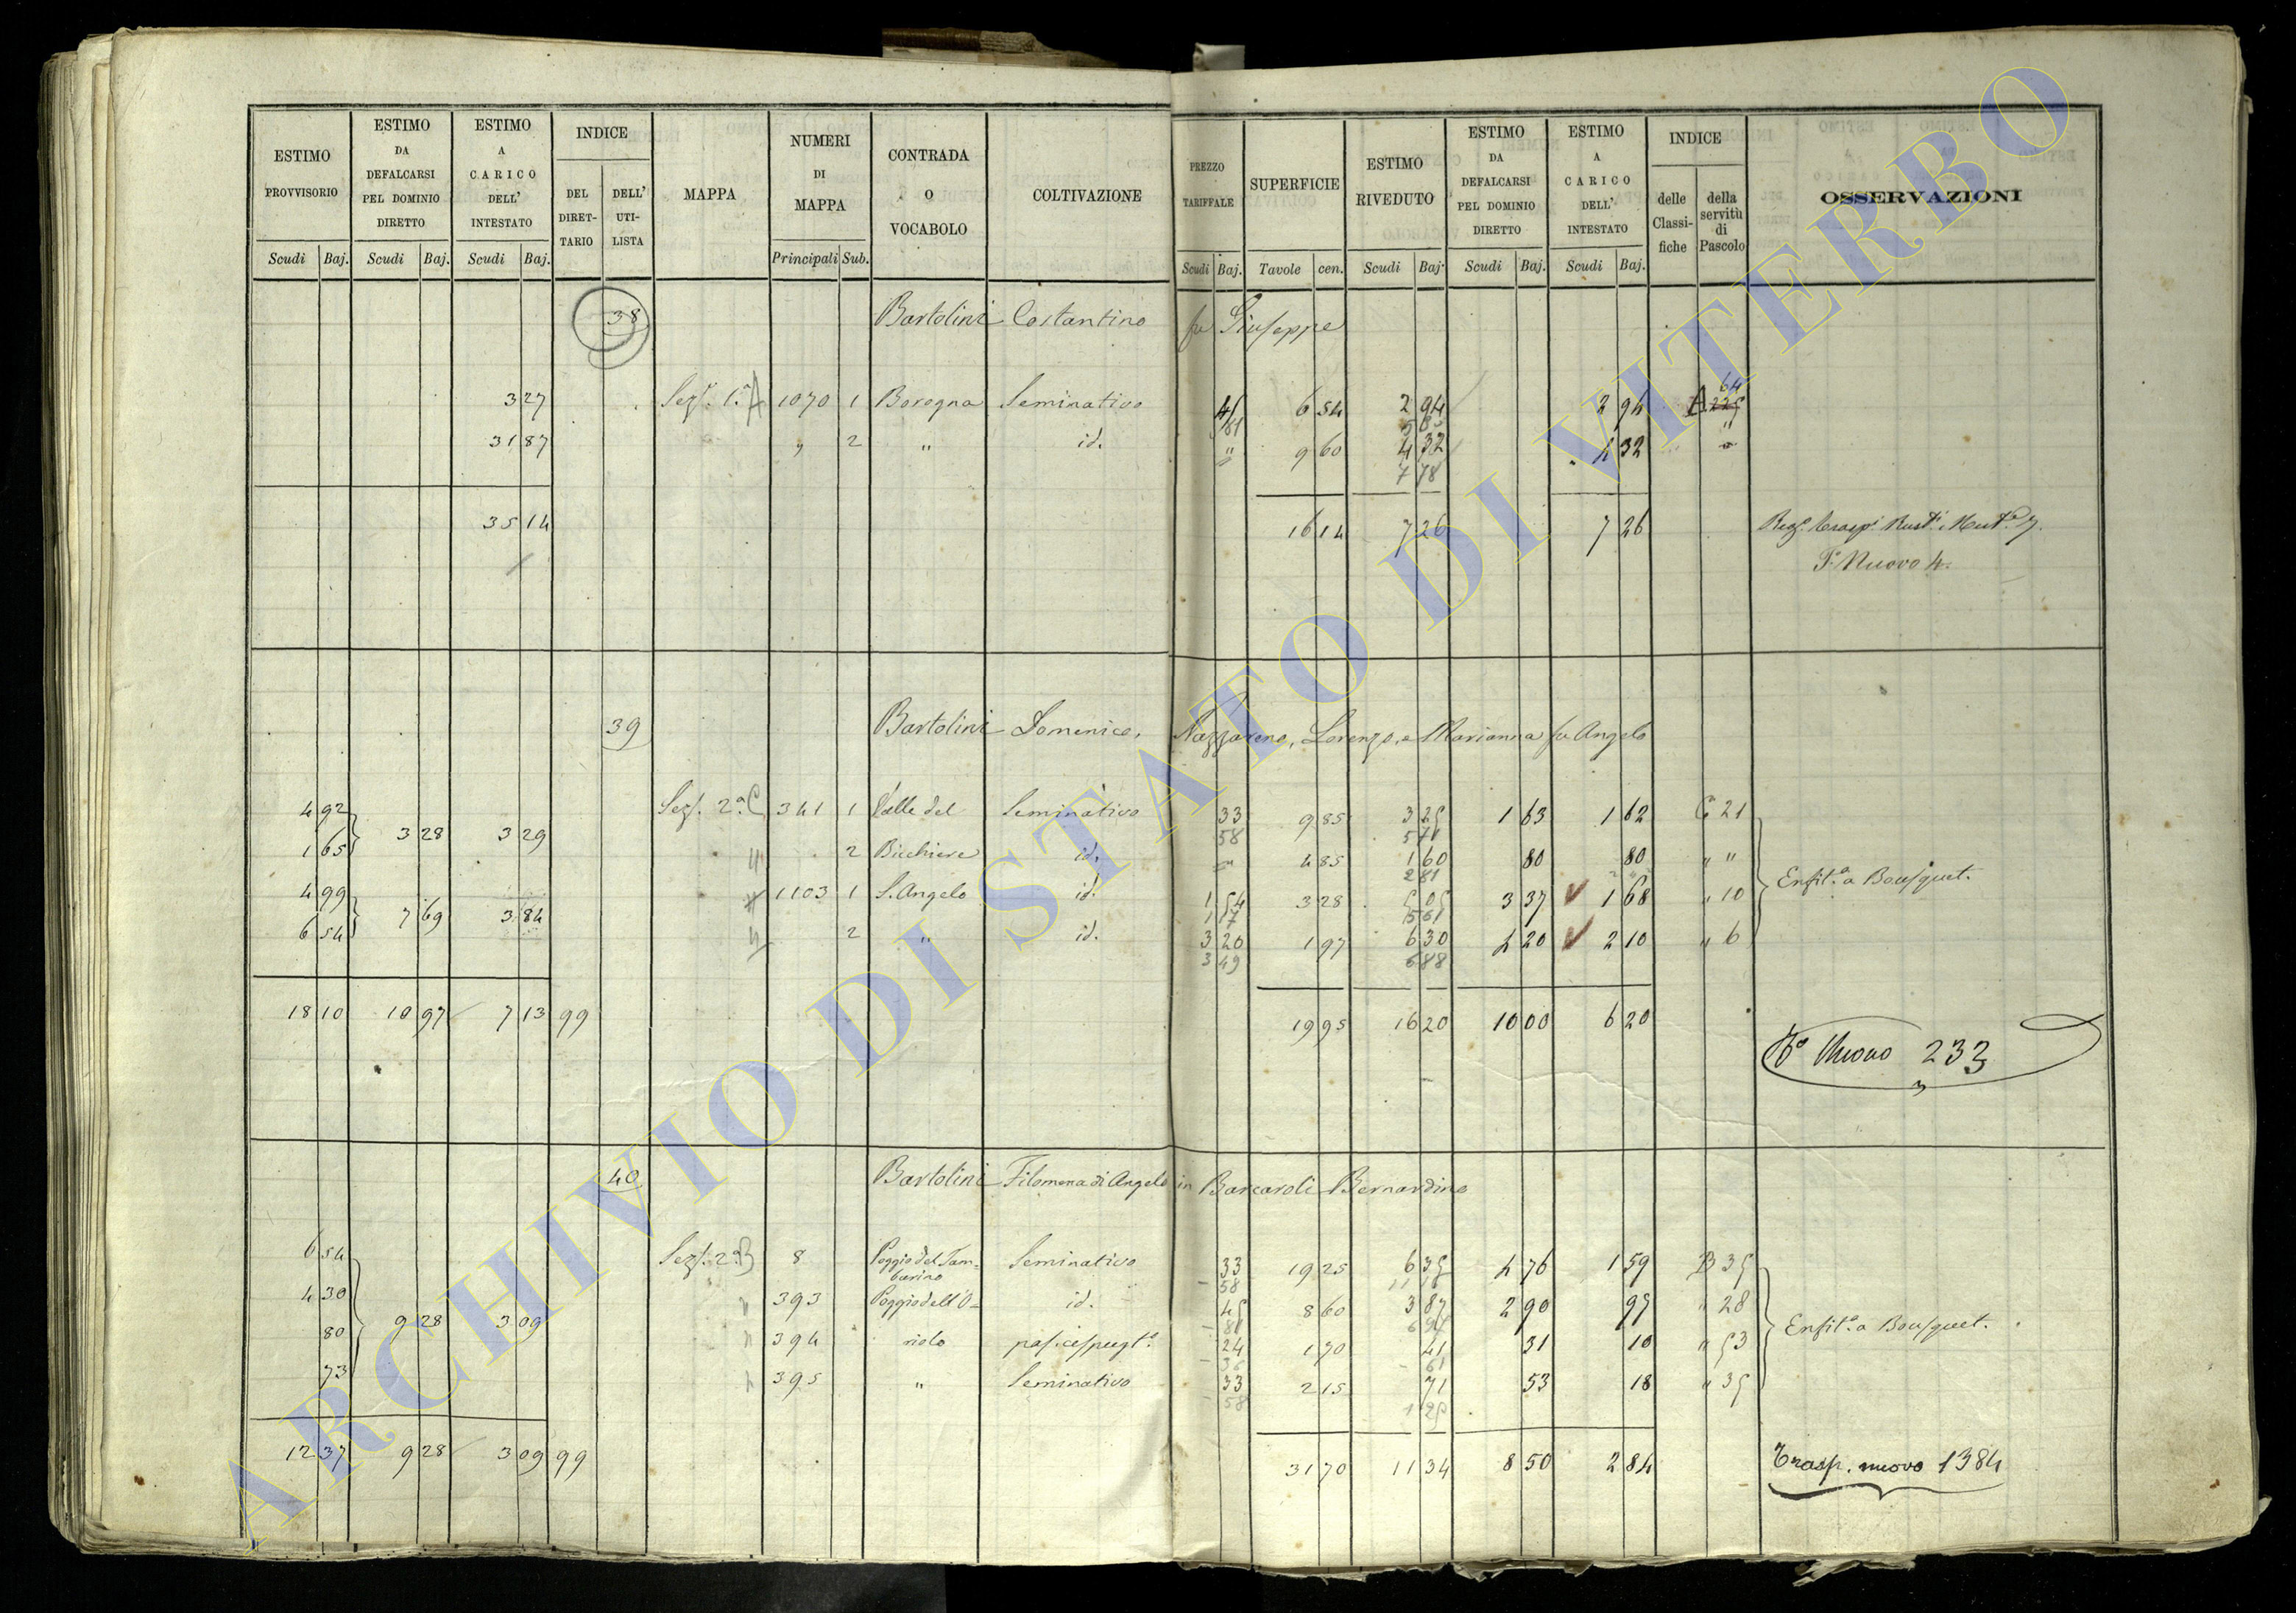 ESTIMO PROVVISORIO
ESTIMO DA DEFALCARSI PEL DOMINIO DIRETTO
ESTIMO A CARICO DELL' INTESTATO
INDICE
DEL DIRET-TARIO
DELL' UTI-LISTA
MAPPA
NUMERI DI MAPPA
CONTRADA O VOCABOLO
COLTIVAZIONE
PREZZO TARIFFALE
SUPERFICIE
ESTIMO RIVEDUTO
ESTIMO DA DEFALCARSI PEL DOMINIO DIRETTO
ESTIMO A CARICO DELL' INTESTATO
INDICE
delle Classi-fiche
della servitù di Pascolo
OSSERVAZIONI
Scudi Baj. Scudi Baj. Scudi Baj. Principali Sub. Scudi Baj. Tavole cen. Scudi Baj. Scudi Baj. Scudi Baj.
38 Bartolini Costantino fu Giuseppe
3 27 Sez. 1.ª A 1070 1 Borogna Seminativo 6 54 2 94 2 94 A 225 64
31 87 " 2 " id. " 9 60 4 32 4 32 "
7 78
35 14 16 14 7 26 7 26 Reg.º Trasp.i Rust.i Mut.e 7.
T.º Nuovo 4.
39 Bartolini Domenico, Nazzareno, Lorenzo, e Marianna fu Angelo
4 92 Sez. 2.ª C 341 1 Valle del Seminativo 33 9 85 3 25 1 63 1 62 C 21
3 28 3 29 58 5 71
1 65 2 Bicchiere id. " 4 85 1 60 80 80 " "
2 81
Enfit.ª a Bousquet.
4 99 1103 1 S. Angelo id. 1 54 3 28 5 05 3 37 1 68 " 10
7 69 3 84 5 61
6 54 2 " id. 3 20 1 97 6 30 4 20 2 10 " 6
3 49 6 88
18 10 10 97 7 13 99 19 95 16 20 10 00 6 20
T.º Nuovo 233
40 Bartolini Filomena di Angelo in Barcaroli Bernardino
6 54 Sez. 2.ª B 8 Poggio del Tam=burino Seminativo 33 19 25 6 35 4 76 1 59 B 35
58
4 30 393 Poggio dell'O= id. 45 8 60 3 87 2 90 97 " 28
9 28 3 09 Enfit.ª a Bousquet.
80 394 riolo pas. cespugt.º 24 1 70 41 31 10 " 53
61
73 395 " Seminativo 33 2 15 71 53 18 " 35
58 1 25
12 37 9 28 3 09 99 31 70 11 34 8 50 2 84 Trasp. nuovo 1384
ARCHIVIO DI STATO DI VITERBO